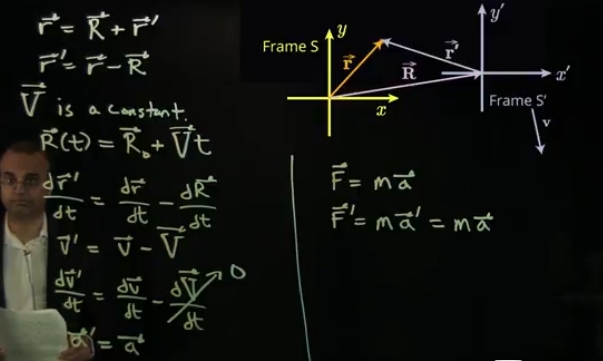 r⃗ = R⃗ + r⃗′
r⃗′ = r⃗ − R⃗
V⃗ is a constant.
R⃗(t) = R⃗₀ + V⃗t
dr⃗′/dt = dr⃗/dt − dR⃗/dt
v⃗′ = v⃗ − V⃗
dv⃗′/dt = dv⃗/dt − dV⃗/dt → 0
a⃗′ = a⃗
y
y′
Frame S
r⃗
r⃗′
R⃗
x′
x
Frame S′
v
F⃗ = ma⃗
F⃗′ = ma⃗′ = ma⃗